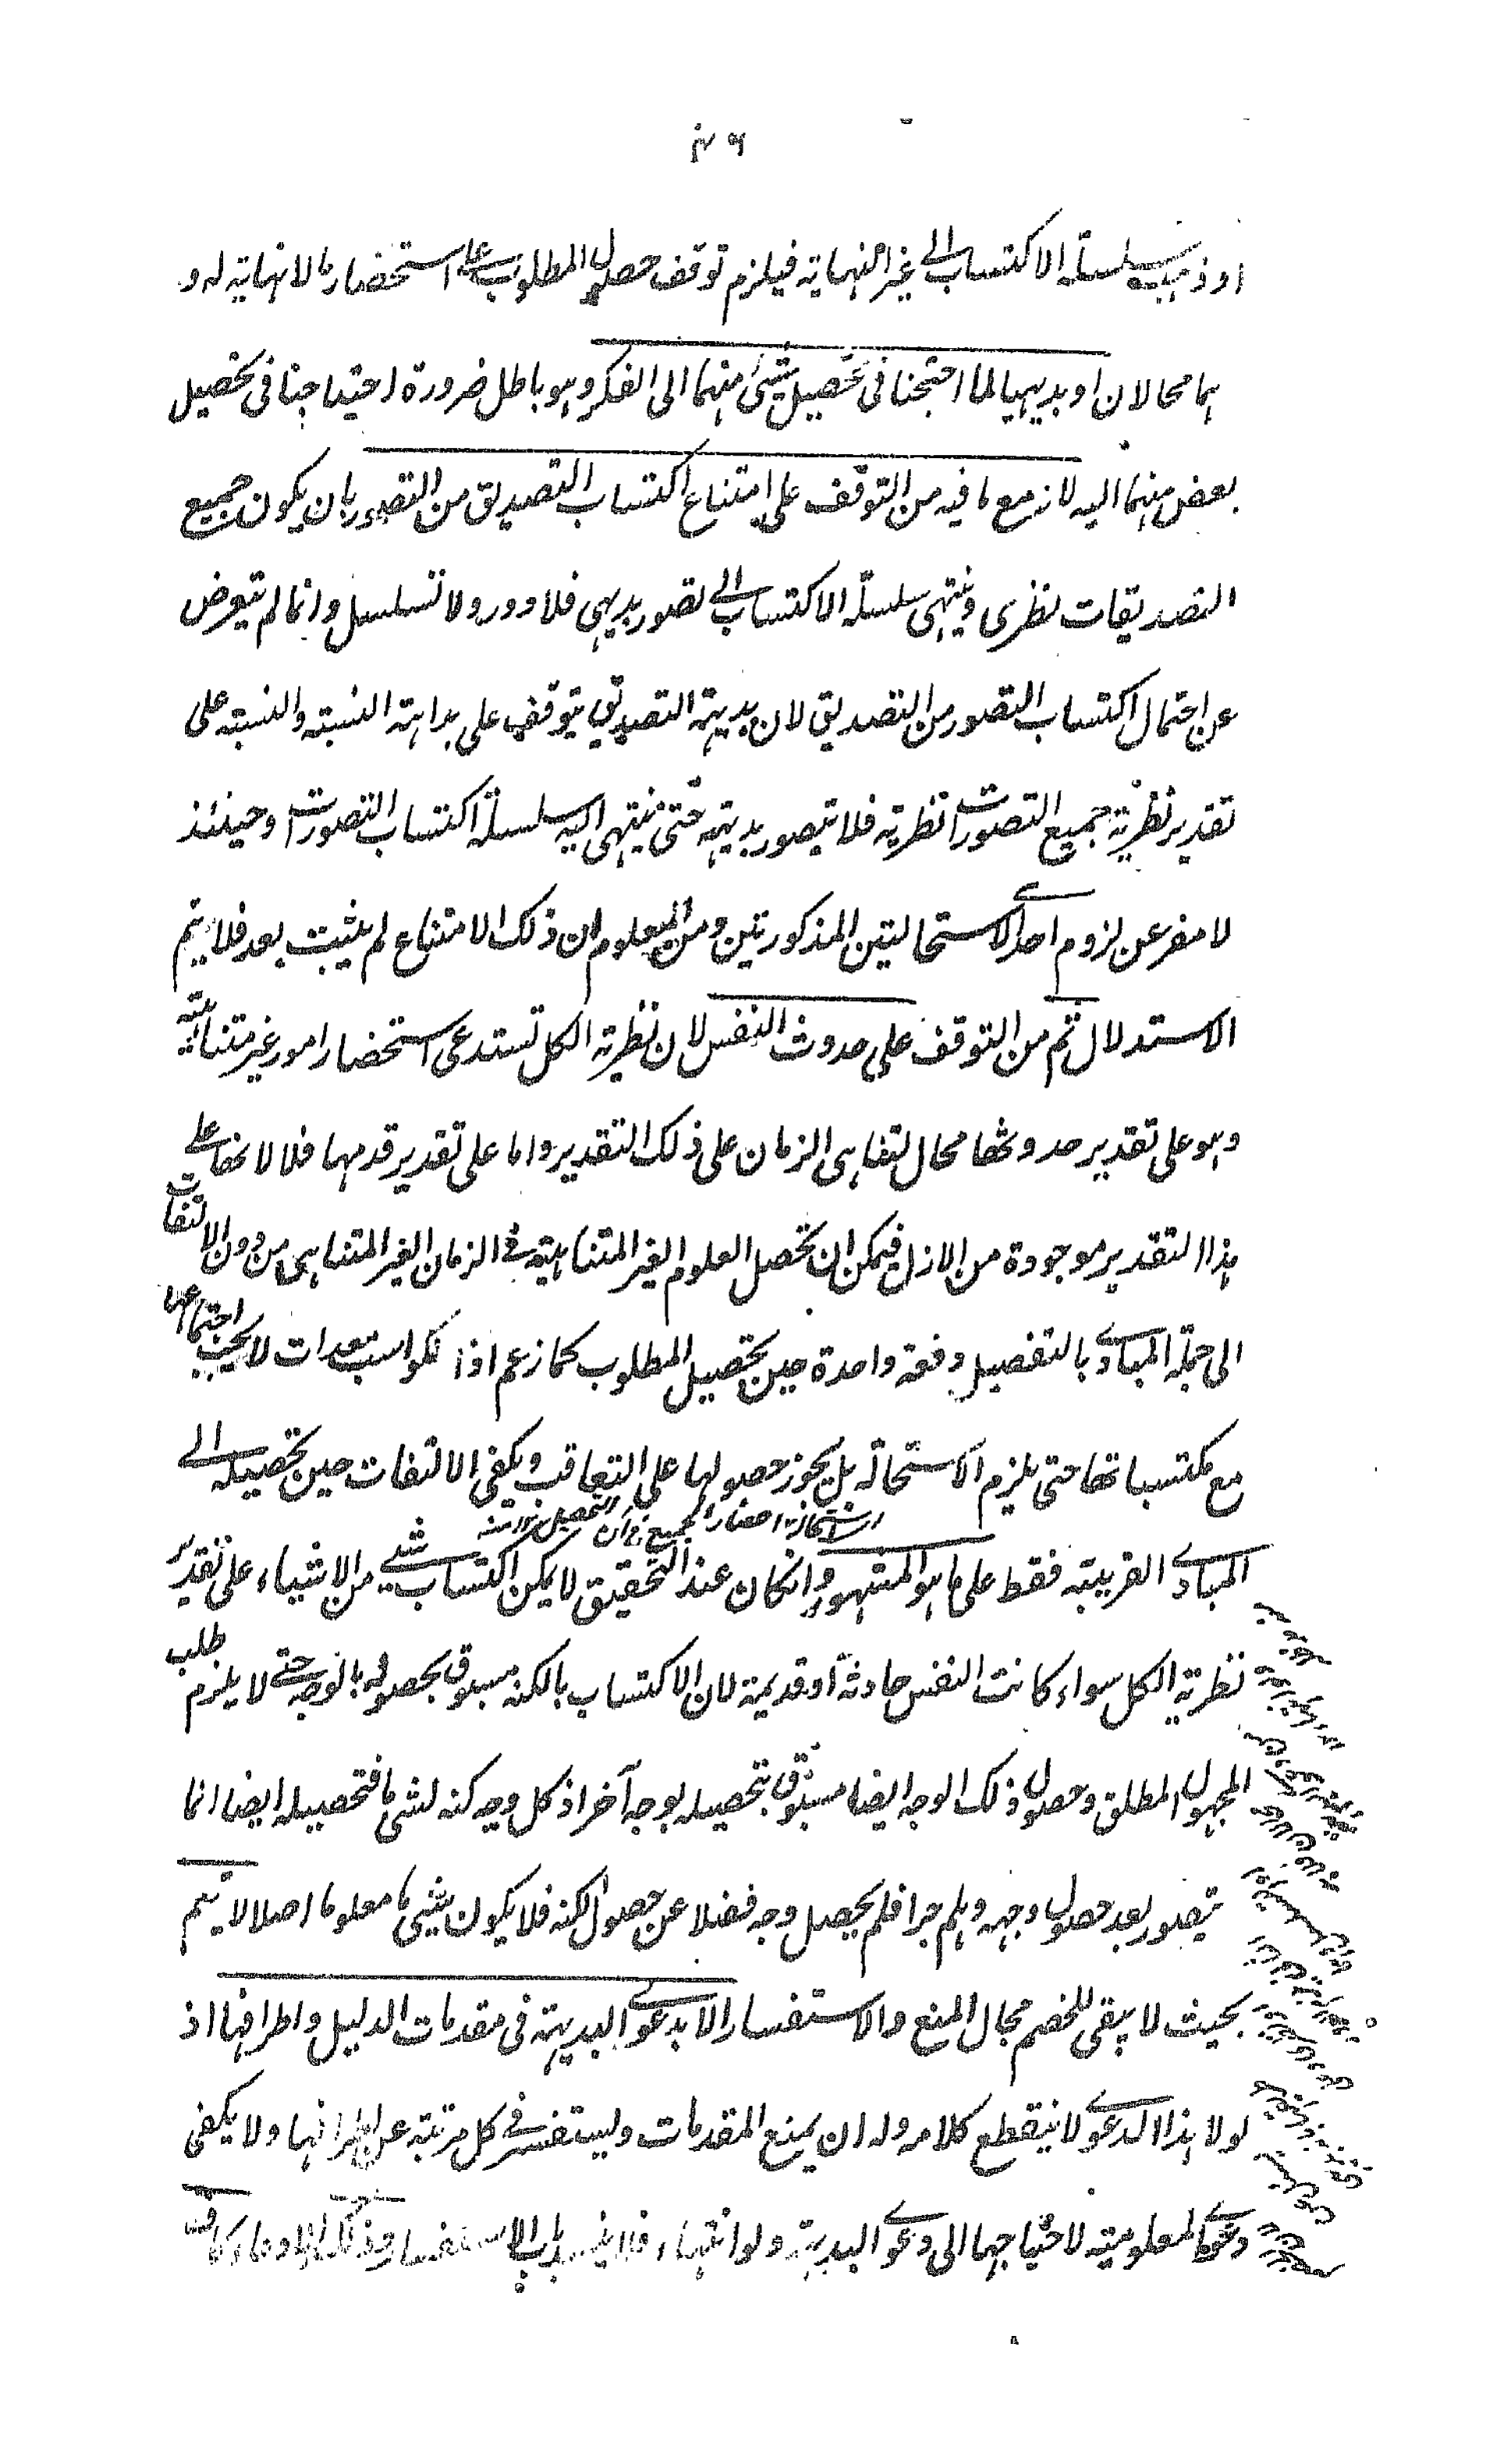 او ذهب سلسلة الاكتساب الى غير النهاية فيلزم توقف حصول المطلوب على استحضار ما لا نهاية له و
هما محالان او بديهيا لما احتجنا في تحصيل شئ منهما الى الفكر وهو باطل ضرورة احتياجنا في تحصيل
بعض منهما اليه لانه مع ما فيه من التوقف على امتناع اكتساب التصديق من التصور بان يكون جميع
التصديقات نظرى وينتهى سلسلة الاكتساب الى تصور بديهى فلا دور ولا تسلسل وانما لم يتعرض
عن احتمال اكتساب التصور من التصديق لان بديهة التصديق يتوقف على بداهة النسبة والنسبة على
تقدير نظرية جميع التصورات نظرية فلا يتصور بديهة حتى ينتهى اليه سلسلة اكتساب التصورات وحينئذ
لا مفر عن لزوم احدى الاستحالتين المذكورتين ومن المعلوم ان ذلك الامتناع لم يثبت بعد فلا يتم
الاستدلال ثم من التوقف على حدوث النفس لان نظرية الكل تستدعى استحضار امور غير متناهية
وهو على تقدير حدوثها محال لتناهى الزمان على ذلك التقدير واما على تقدير قدمها فلا لانها على
هذا التقدير موجودة من الازل فيمكن ان تحصل العلوم الغير المتناهية في الزمان الغير المتناهى من دون الالتفات
الى جملة المبادى بالتفصيل دفعة واحدة حين تحصيل المطلوب كما زعم اذ الكواسب معدات لا يجب اجتماعها
مع مكتسباتها حتى يلزم الاستحالة بل يجوز حصولها على التعاقب ويكفى الالتفات حين تحصيله الى
المبادى القريبة فقط على ما هو المشهور وانكان عند التحقيق لا يمكن اكتساب شئ من الاشياء على تقدير
نظرية الكل سواء كانت النفس حادثة او قديمة لان الاكتساب بالكنه مسبوق بحصوله بالوجه حتى لا يلزم طلب
المجهول المطلق وحصول ذلك الوجه ايضا مسبوق بتحصيله بوجه آخر اذ كل وجه كنه لشئ ما فتحصيله ايضا انما
يتصور بعد حصول وجهه وهلم جرا فلم يحصل وجه فضلا عن حصول الكنه فلا يكون شئ ما معلوما اصلا لا يتم
بحيث لا يبقى للخصم مجال المنع والاستفسار الا بدعوى البديهة في مقدمات الدليل واطرافها اذ
لولا هذا الدعوى لا ينقطع كلامه وله ان يمنع المقدمات ويستفسر في كل مرتبة عن اطرافها ولا يكفى
دعوى المعلومية لاحتياجها الى دعوى البديهة ولو انتهاء فلا ينسد باب الاستفسار وذلك الادعاء كاف